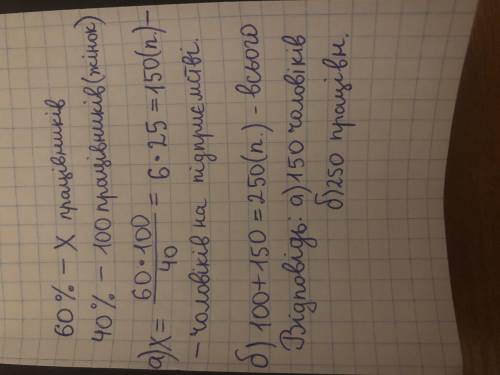 60% - X працівників
40% - 100 працівників (жінок)
а) X = 60•100/40 = 6•25 = 150(п.) -
- чоловіків на підприємстві.
б) 100+150=250(п.) - всього
Відповідь: а) 150 чоловіків
б) 250 працівн.